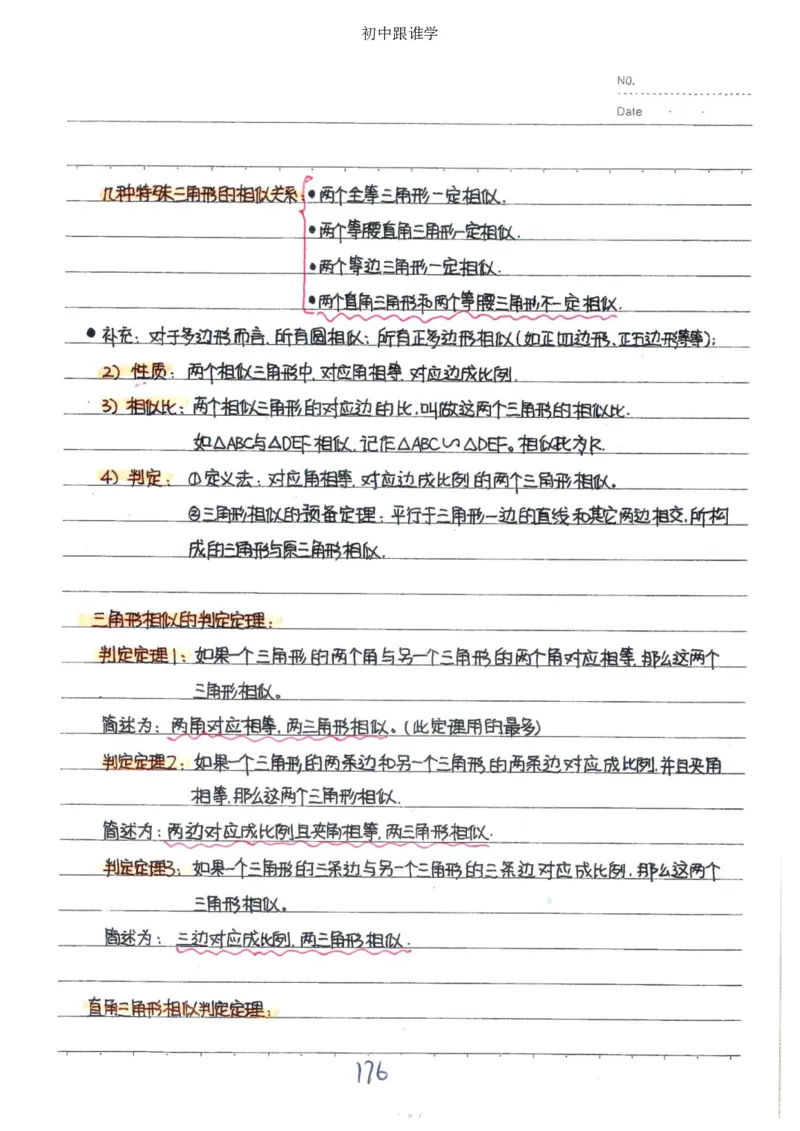 初中跟谁学
No.
Date
几种特殊三角形的相似关系:
•两个全等三角形一定相似.
•两个等腰直角三角形一定相似.
•两个等边三角形一定相似.
•两个直角三角形和两个等腰三角形不一定相似.
•补充: 对于多边形而言,所有圆相似; 所有正多边形相似(如正四边形、正五边形等等);
2) 性质: 两个相似三角形中,对应角相等,对应边成比例.
3) 相似比: 两个相似三角形的对应边的比,叫做这两个三角形的相似比.
如△ABC与△DEF相似,记作△ABC∽△DEF。相似比为k.
4) 判定: ①定义去: 对应角相等,对应边成比例的两个三角形相似。
②三角形相似的预备定理: 平行于三角形一边的直线和其它两边相交,所构
成的三角形与原三角形相似.
三角形相似的判定定理:
判定定理1: 如果一个三角形的两个角与另一个三角形的两个角对应相等,那么这两个
三角形相似。
简述为: 两角对应相等,两三角形相似。(此定理用的最多)
判定定理2: 如果一个三角形的两条边和另一个三角形的两条边对应成比例,并且夹角
相等,那么这两个三角形相似.
简述为: 两边对应成比例且夹角相等,两三角形相似.
判定定理3: 如果一个三角形的三条边与另一个三角形的三条边对应成比例,那么这两个
三角形相似。
简述为: 三边对应成比例,两三角形相似.
直角三角形相似判定定理:
176